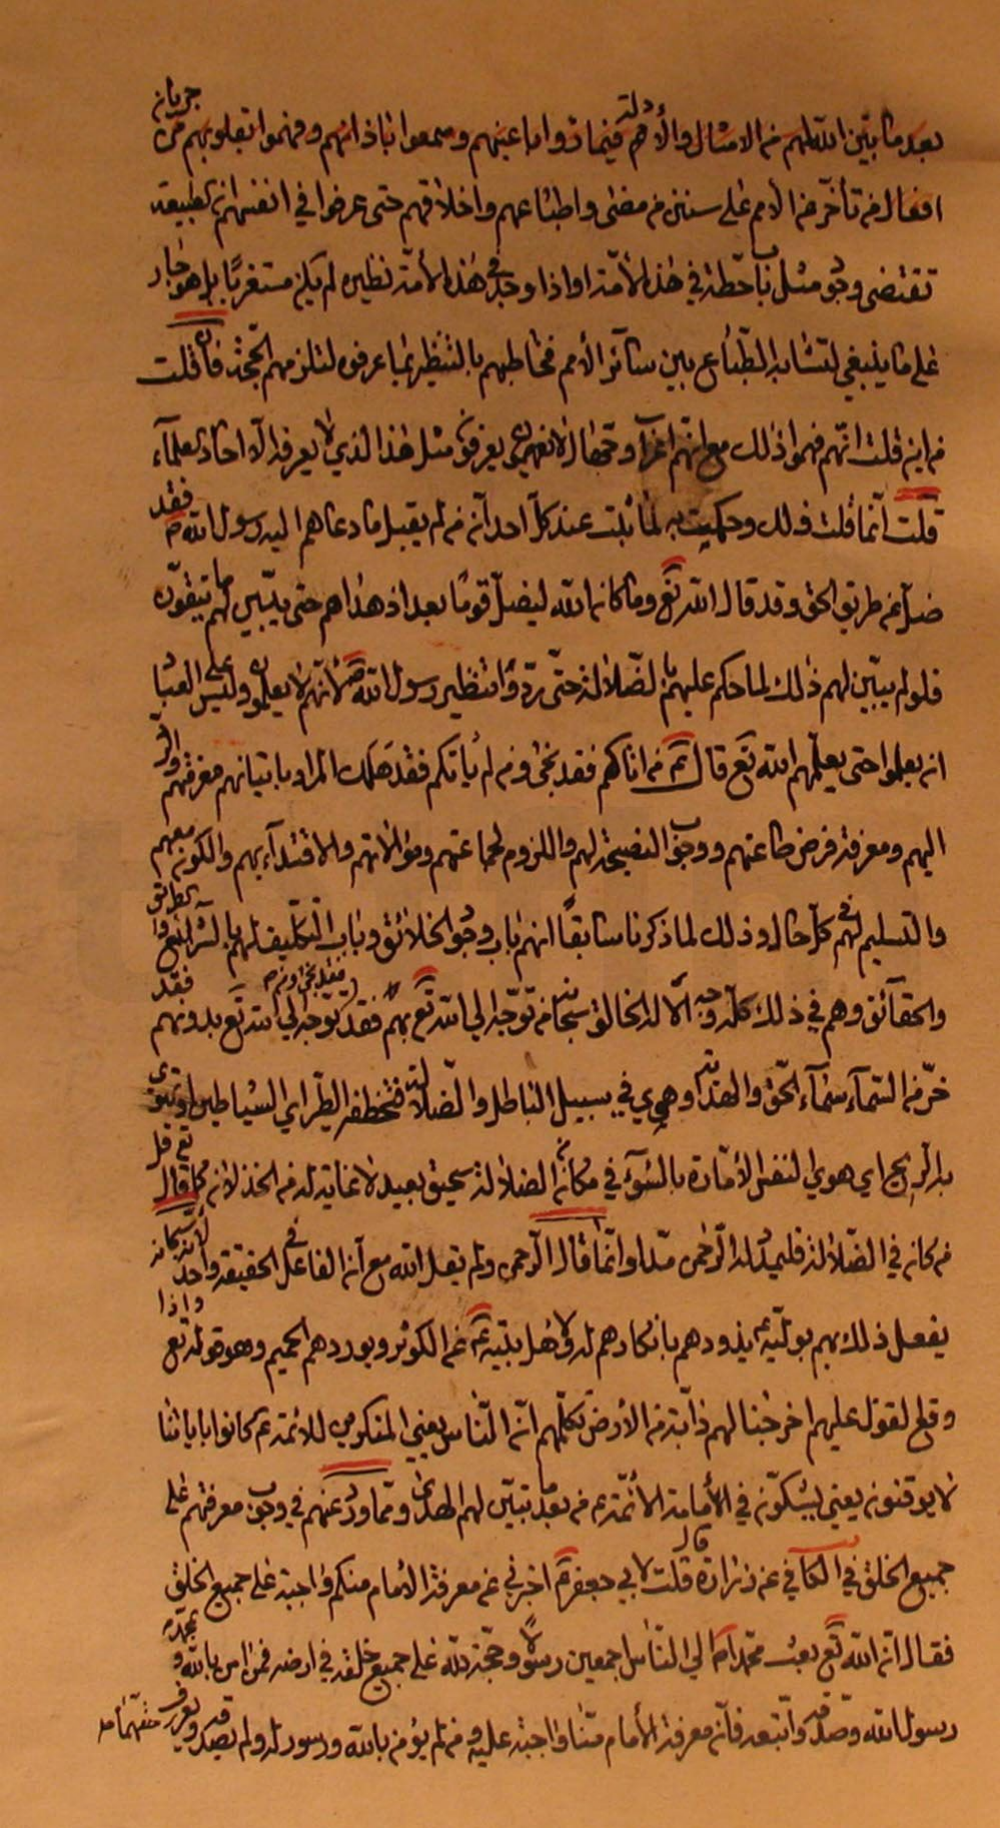 بعد ما بيّن الله لهم من الامثال والأدلة لهم فيما رأوا باعينهم وسمعوا باذانهم وفهموا بقلوبهم من جريان
افعال من تأخر من الأمم على سنن من مضى واطباعهم واخلاقهم حتى عرفوا في انفسهم ان تطبيقه
تقتضى وجود مثل باب حطة في هذه الأمّة او اذا وجد في هذه الأمّة نظيره لم يكن مستغربًا بل هو جار
على ما ينبغي لتشابه الطّباع بين سائر الأمم فخاطبهم بالتنظير بما عرفوه لتلزمهم الحجّة فان قلت
من اين قلت انّهم فهموا ذلك مع انّهم اعراب وجهّال لا يعرفون مثل هذا الذي لا يعرفه الّا احاد العلمآء
قلت انّما قلت ذلك وحكمت به لما ثبت عند كلّ احد انّه من لم يقبل ما دعاهم اليه رسول الله ص فقد
ضلّ عن طريق الحق وقد قال الله تع وما كان الله ليضلّ قومًا بعد اذ هداهم حتى يبيّن لهم ما يتّقون
فلو لم يبيّن لهم ذلك لما حكم عليهم بالضّلالة حتّى ردّوا تنظير رسول الله ص لأنّهم لا يعلمون وليس على العباد
ان يعلموا حتى يعلّمهم الله تع قال ع من اتاكم فقد نجى ومن لم يأتكم فقد هلك المراد باتيانهم معرفتهم والردّ
اليهم ومعرفة فرض طاعتهم ووجوب النصيحة لهم واللزوم لجماعتهم وموالاتهم والاقتدآء بهم والكون معهم
والتسليم لهم في كلّ حال وذلك لما ذكرنا سابقًا انهم باب وجود الخلائق وباب التكليف لهم بالشرائع والطرائق
والحقآئق وهم في ذلك كلّه وجه الله الخالق سبحانه فمن توجّه الى الله تع بهم فقد توجّه الى الله فقد نجى ومن توجّه الى الله تع بدونهم فقد
خرّ من السّمآء سمآء الحقّ والهداية وهوى في سبيل الباطل والضّلالة فتخطفه الطّير اي الشياطين او تهوى
به الريح اي هوى النفس الأمّارة بالسّوء في مكان الضلالة سحيق بعيد لا غاية له من الخذلان كما قال تع قل
من كان في الضّلالة فليمدد له الرّحمن مدّا وانّما قال الرّحمن ولم يقل الله مع انّه الفاعل في الحقيقة واحد لأنه سبحانه
يفعل ذلك بهم بوليّه ع يذودهم بانكارهم لولاية وليّه ع عن الكوثر ويوردهم الحميم وهو قوله تع واذا
وقع القول عليهم اخرجنا لهم دآبّة من الأرض تكلّمهم انّ النّاس يعني المنكرين للائمة ع كانوا بآياتنا
لا يوقنون يعني يشكّون في الأمامة الأئمّة ع من بعد ما تبيّن لهم الهدى وممّا ورد عنهم في وجوب معرفتهم على
جميع الخلق في الكافي عن زرارة قال قلت لابي جعفر ع اخبرني عن معرفة الامام منكم واجبة على جميع الخلق
فقال انّ الله تع بعث محمّدا ص الى النّاس اجمعين رسولًا وحجّة لله على جميع خلقه في ارضه فمن امن بالله وبمحمّد
رسول الله وصدّقه واتّبعه فانّ معرفة الأمام منّا واجبة عليه ومن لم يؤمن بالله ورسوله ولم يصدّقه ويعرف حقّهما